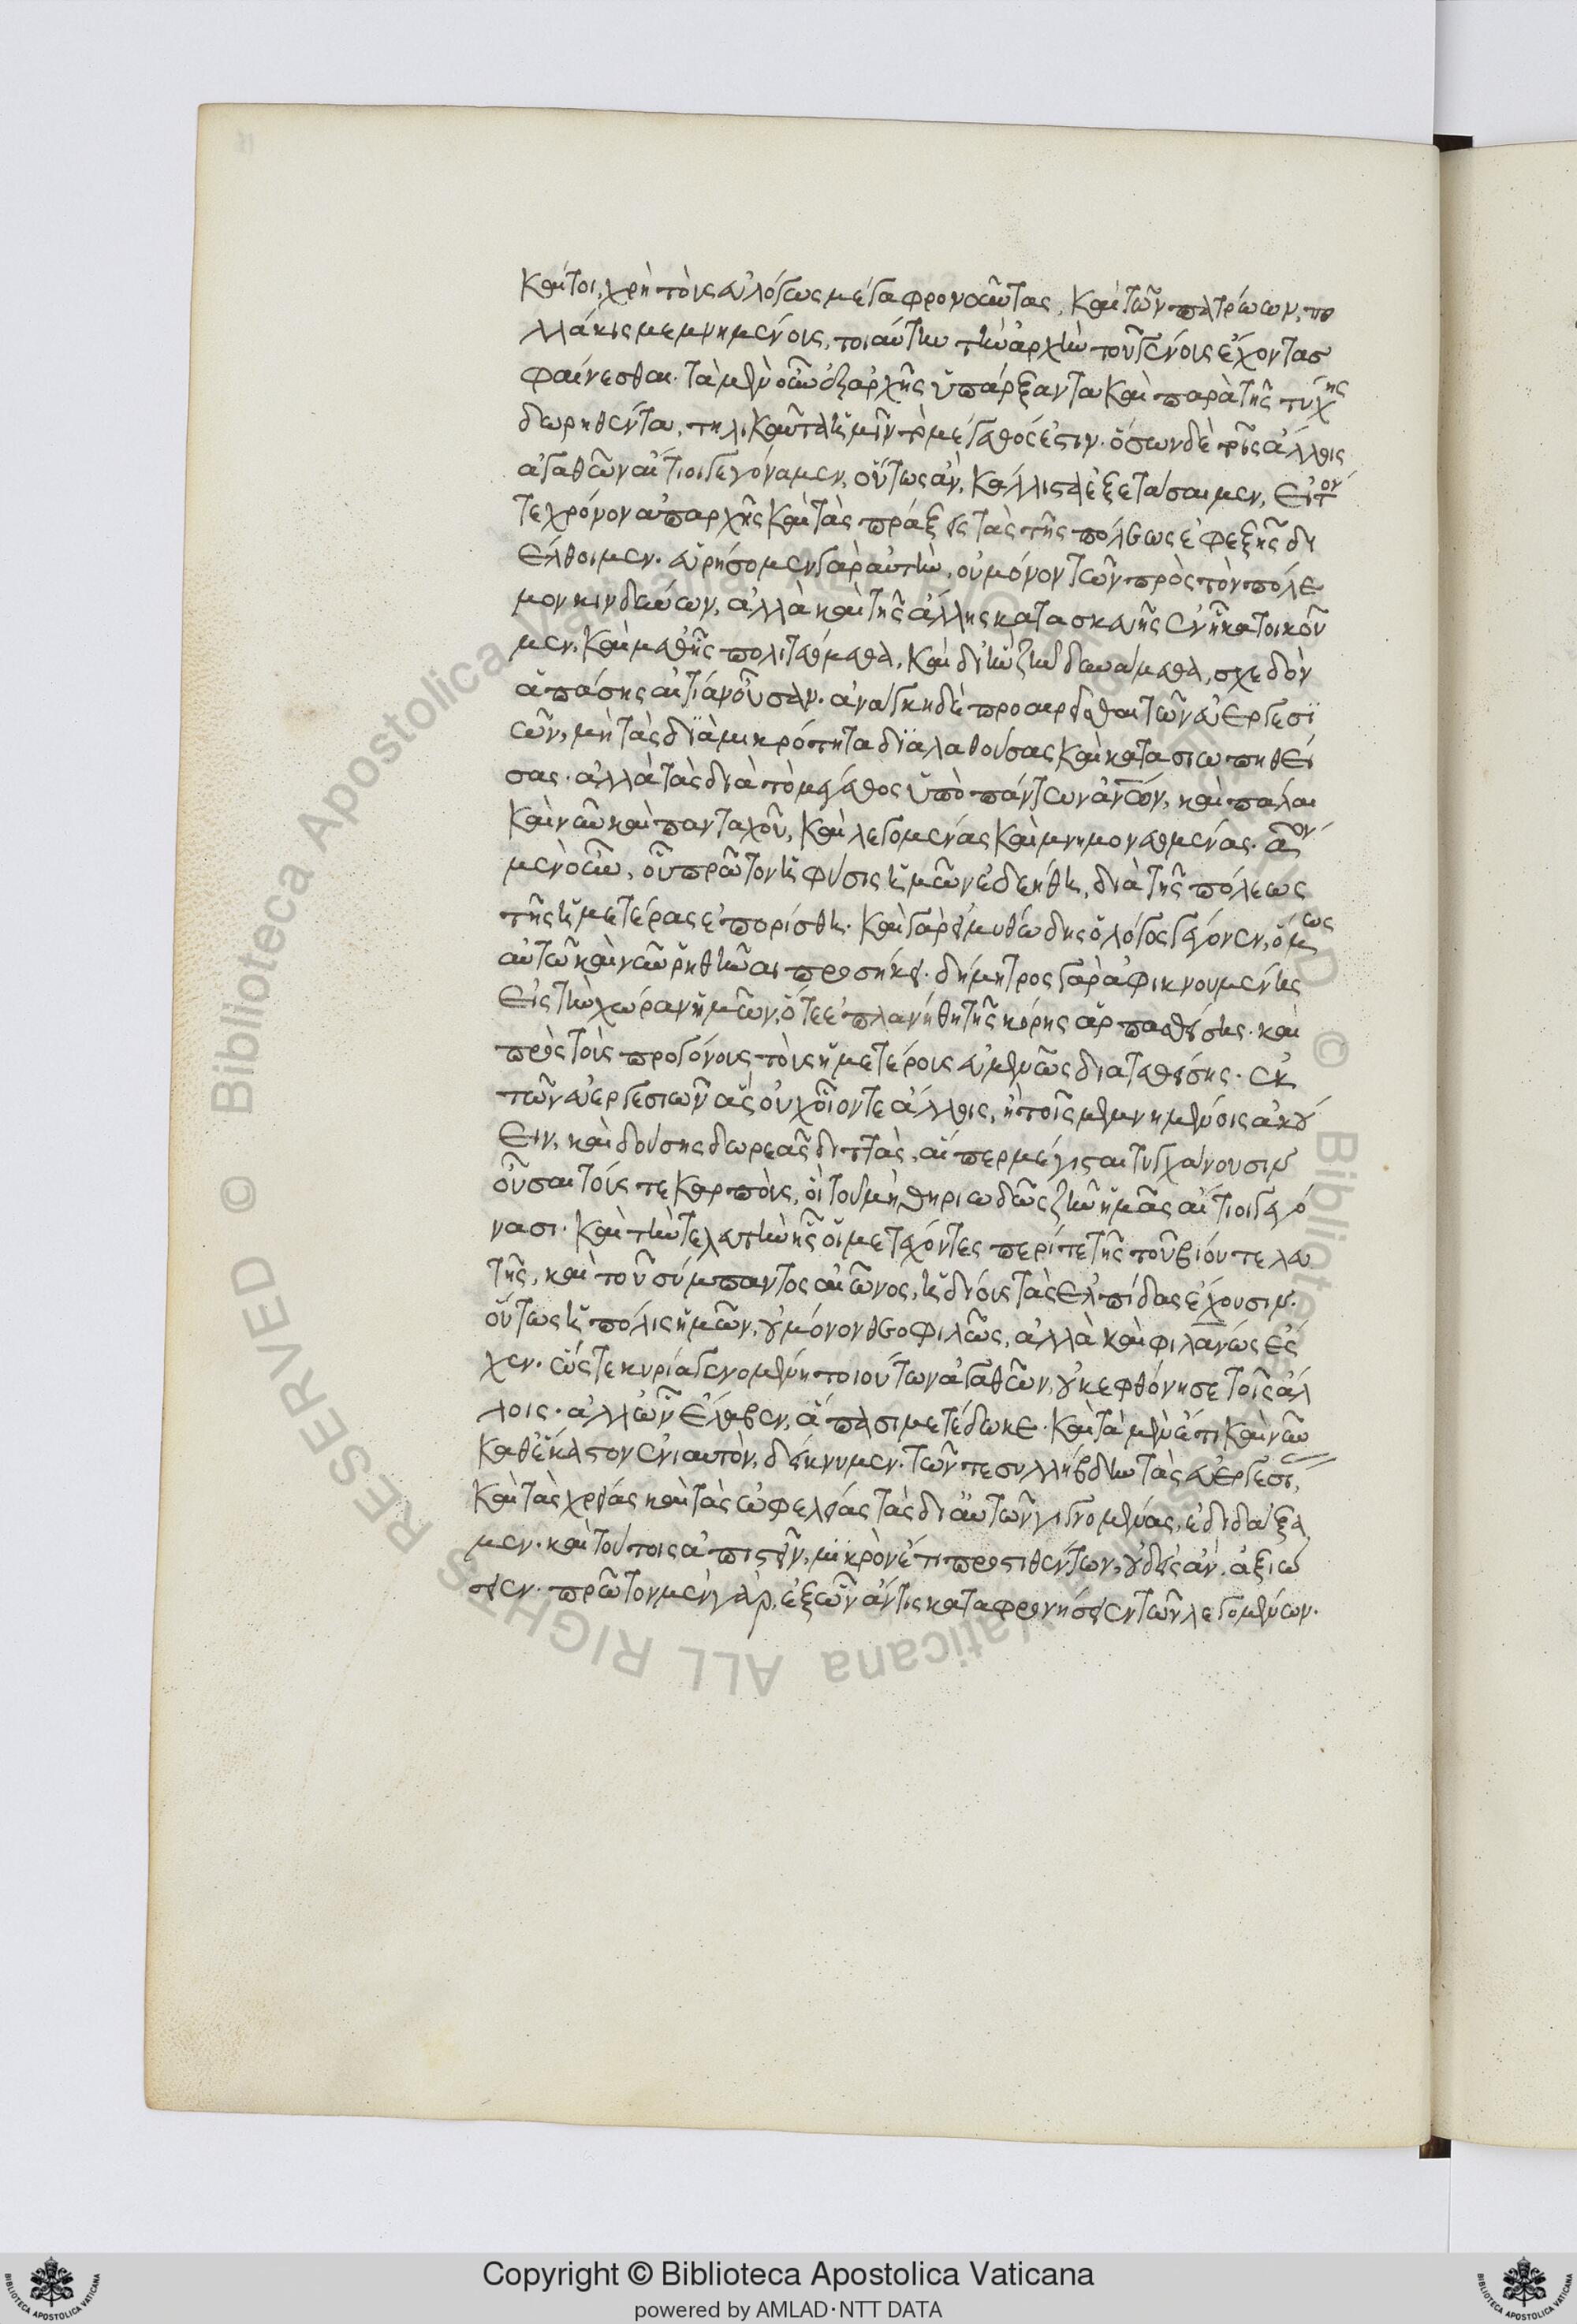 Καίτοι, χρὴ τοὺς εὐλόγως μέγα φρονοῦντας, καὶ τῶν πατρώων, πο
λλάκις μεμνημένοις, τοιαύτην τὴν ἀρχὴν τοῦ γένοις ἔχοντασ
φαίνεσθαι. τὰ μὲν οὖν ἐξαρχῆς ὑπάρξαντα καὶ παρὰ τῆς τύχης
δωρηθέντα, τηλικαῦτα ἡμῖν τὸ μέγαθός ἐστιν. ὅσων δὲ τοῖς ἄλλοις
ἀγαθῶν αἴτιοι γεγόναμεν, οὕτως ἂν, κάλλιστα ἐξετάσαιμεν, εἰ τόν
τε χρόνον ἀπαρχῆς καὶ τὰς πράξεις τὰς τῆς πόλεως ἐφεξῆς δι
έλθοιμεν. εὑρήσομεν γὰρ αὐτὴν, οὐ μόνον τῶν πρὸς τὸν πόλε
μον κινδύνων, ἀλλὰ καὶ τῆς ἄλλης κατασκευῆς ἐν ᾗ κατοικοῦ
μεν, καὶ μεθ' ἧς πολιτευόμεθα, καὶ δι' ἣν ζῆν δυνάμεθα, σχεδὸν
ἁπάσης αἰτίαν οὖσαν. ἀνάγκη δὲ προαιρεῖσθαι τῶν εὐεργεσϊ
ῶν, μὴ τὰς διὰ μικρότητα διαλαθούσας καὶ κατασιωπηθεί
σας. ἀλλὰ τὰς διὰ τὸ μέγεθος ὑπὸ πάντων ἀνων, καὶ πάλαι
καὶ νῦν καὶ πανταχοῦ, καὶ λεγομένας καὶ μνημονευομένας.
μὲν οὖν, οὗ πρῶτον ἡ φύσις ἡμῶν ἐδεήθη, διὰ τῆς πόλεως
τῆς ἡμετέρας ἐπορίσθη. καὶ γὰρ εἰ μυθώδης ὁ λόγος γέγονεν, ὅμως
αὐτῶ καὶ νῦν ῥηθῆναι προσήκει. δήμητρος γὰρ ἀφικνουμένης
εἰς τὴν χώραν ἡμῶν, ὅτε ἐπλανήθη τῆς κόρης ἁρπασθείσης. καὶ
πρὸς τοὺς προγόνους τοὺς ἡμετέροις εὐμενῶς διατεθείσης. ἐκ
τῶν εὐεργεσιῶν ἃς οὐχ οἷόν τε ἄλλοις, ἢ τοῖς μεμνημένοις ἀκού
ειν, καὶ δούσης δωρεὰς διττὰς, αἵπερ μέγισται τυγχάνουσιν
οὖσαι τούς τε καρποὺς, οἳ τοῦ μὴ θηριωδῶς ζῆν ἡμᾶς αἴτιοι γεγό
νασι. καὶ τὴν τελετὴν ἧς οἱ μετέχοντες περί τε τῆς τοῦ βίου τελευ
τῆς, καὶ τοῦ σύμπαντος αἰῶνος, ἡδίους τὰς ἐλπίδας ἔχουσιν.
οὕτως ἡ πόλις ἡμῶν, οὐ μόνον θεοφιλῶς, ἀλλὰ καὶ φιλανως ἔς
χεν. ὥστε κυρία γενομένη τοιούτων ἀγαθῶν, οὐκ ἐφθόνησε τοῖς ἄλ
λοις. ἀλλ' ὧν ἔλαβεν, ἅπασι μετέδωκε. καὶ τὰ μὲν ἔτι καὶ νῦν
καθ' ἕκαστον ἐνιαυτὸν, δείκνυμεν. τῶν τε συλλήβδην τὰς εὐεργεσί,
καὶ τὰς χρείας καὶ τὰς ὠφελείας τὰς δι' αὐτῶν γιγνομένας, ἐδιδάξα
μεν. καὶ τούτοις ἀπιστεῖν, μικρὸν ἔτι προστιθέντων, οὐδεὶς ἂν, ἀξιώ
σειεν. πρῶτον μὲν γὰρ, ἐξ ὧν ἄν τις καταφρονήσειεν τῶν λεγομένων.